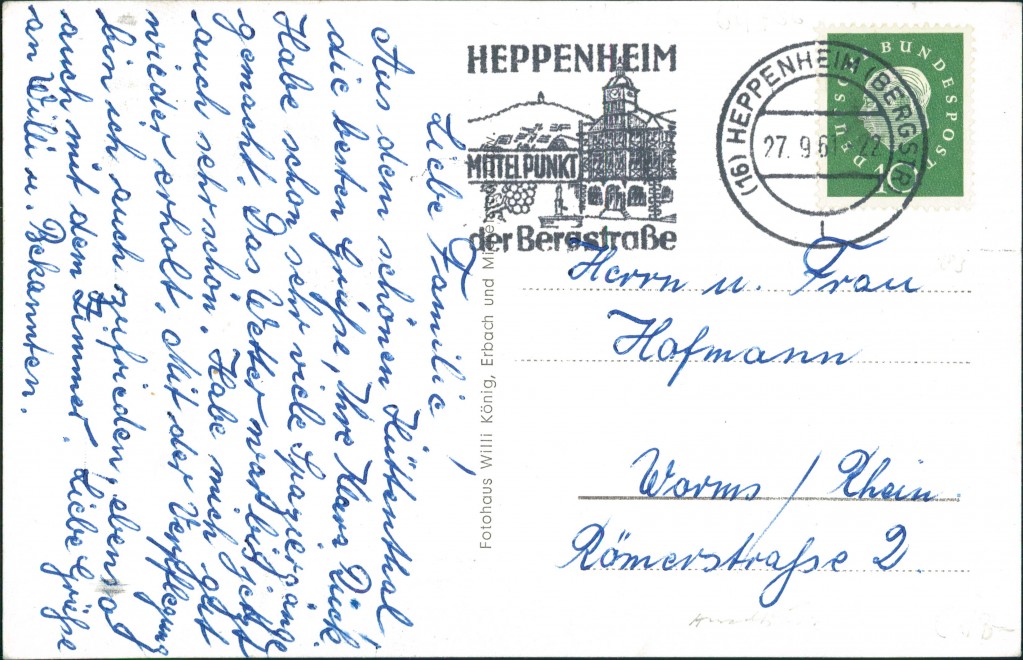 Liebe Familie,
Aus dem schönen Hüttenthal
die besten Grüße, Ihre Klara Dück.
Habe schon sehr viele Spaziergänge
gemacht. Das Wetter war bis jetzt
auch sehr schön. Habe mich gut
wieder erholt. Mit der Verpflegung
bin ich auch zufrieden, ebenso
auch mit dem Zimmer. Liebe Grüße
an Willi u. Bekannten.
Fotohaus Willi König, Erbach und
HEPPENHEIM
MITTELPUNKT
der Bergstraße
(16) HEPPENHEIM (BERGSTR)
27. 9. 61
DEUTSCHE BUNDESPOST
10
Herrn u. Frau
Hofmann
Worms / Rhein.
Römerstraße 2.